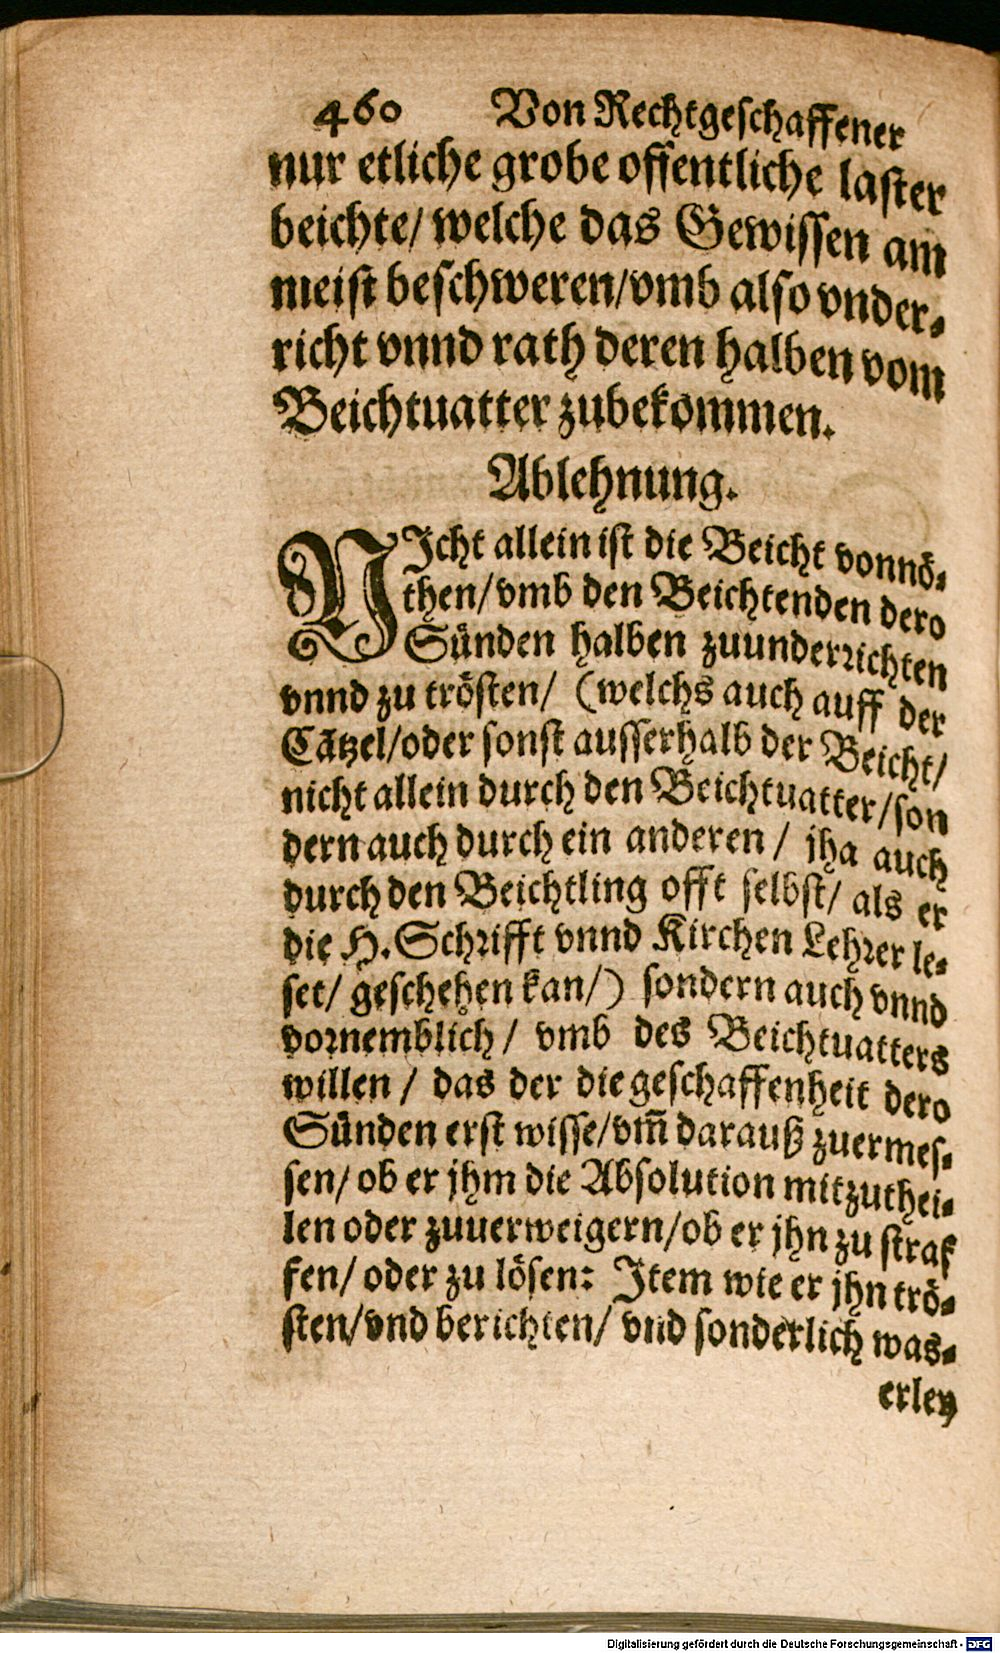 460 Von Rechtgeschaffener
nur etliche grobe offentliche laster
beichte/ welche das Gewissen am
meist beschweren/vmb also vnder⸗
richt vnnd rath deren halben vom
Beichtuatter zubekommen.
Ablehnung.
NIcht allein ist die Beicht vonnö⸗
then/vmb den Beichtenden dero
Sünden halben zuunderrichten
vnnd zu trösten/ (welchs auch auff der
Cätzel/oder sonst ausserhalb der Beicht/
nicht allein durch den Beichtuatter/son
dern auch durch ein anderen/ jha auch
durch den Beichtling offt selbst/ als er
die H. Schrifft vnnd Kirchen Lehrer le⸗
set/ geschehen kan/) sondern auch vnnd
vornemblich/ vmb des Beichtuatters
willen/ das der die geschaffenheit dero
Sünden erst wisse/vm̃ darauß zuermes⸗
sen/ ob er jhm die Absolution mitzuthei⸗
len oder zuuerweigern/ob er jhn zu straf
fen/ oder zu lösen: Item wie er jhn trö⸗
sten/vnd berichten/ vnd sonderlich was⸗
erley
Digitalisierung gefördert durch die Deutsche Forschungsgemeinschaft - DFG